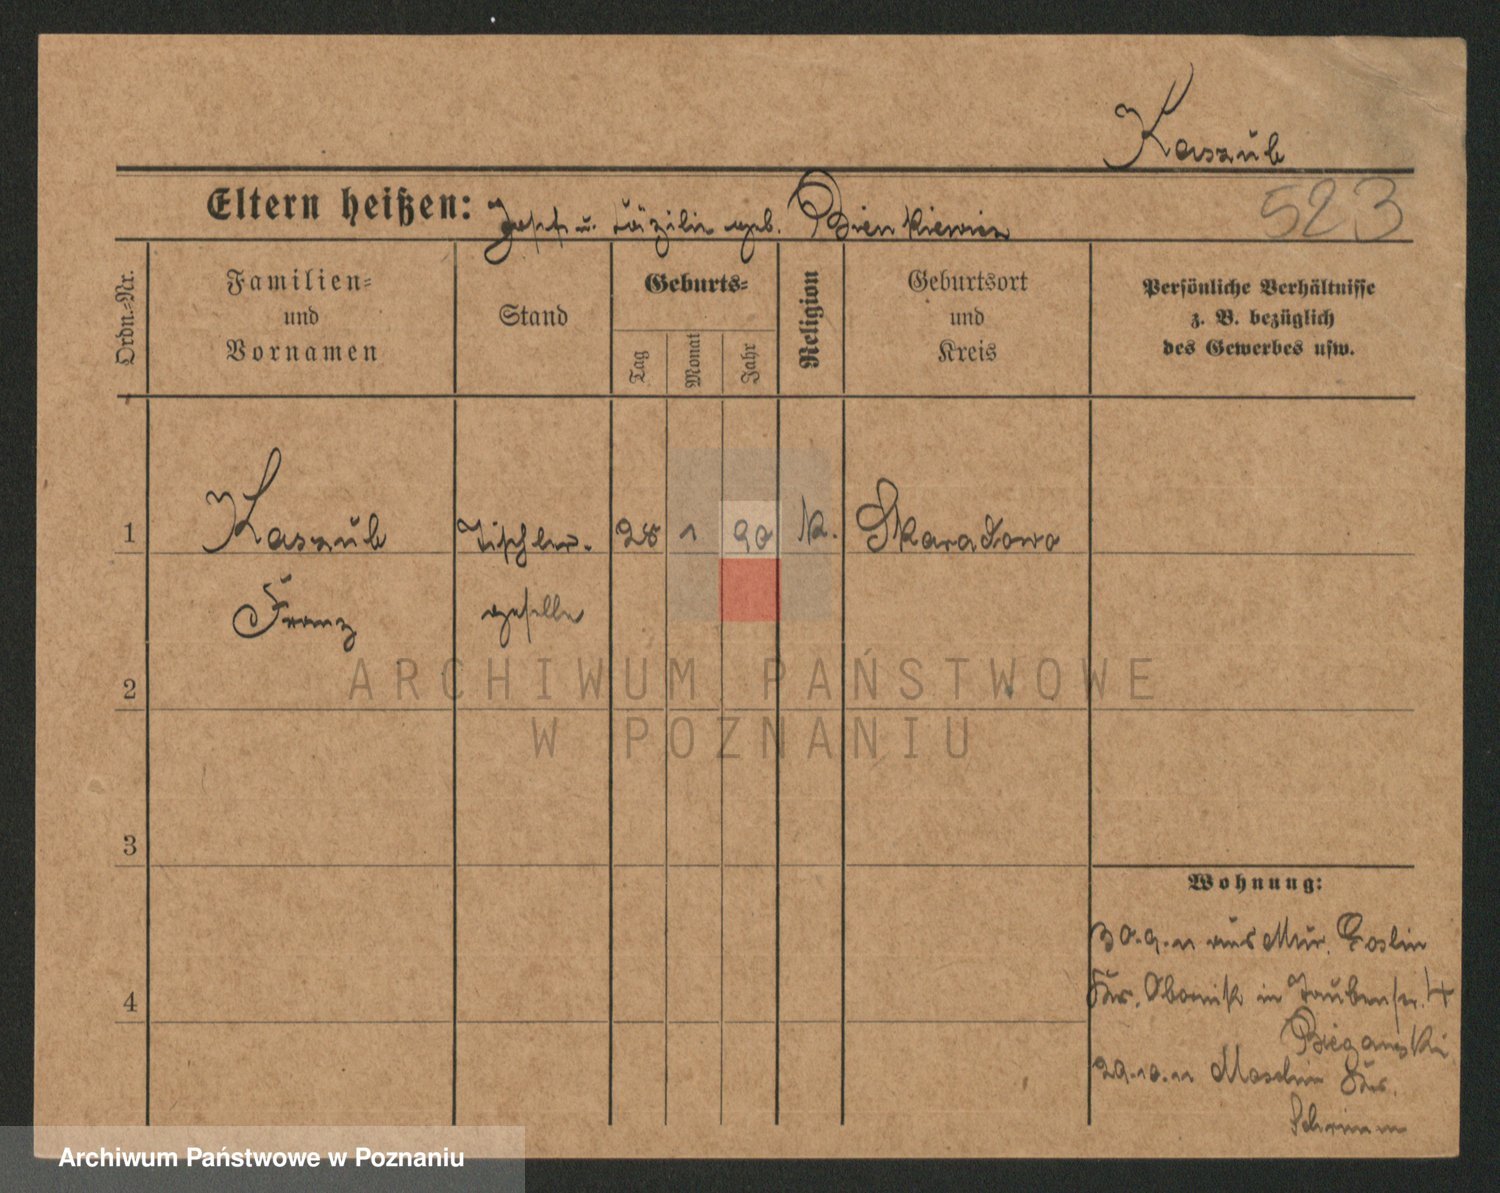 Kaszub
Eltern heißen: Josef u. Cäzilie geb. Bienkiewicz
523
Ordn.=Nr.
Familien=
und
Vornamen
Stand
Geburts=
Tag
Monat
Jahr
Religion
Geburtsort
und
Kreis
Persönliche Verhältnisse
z. B. bezüglich
des Gewerbes usw.
1 Kaszub Tischler- 28 1 90 k. Skaradowo
Franz geselle
2
3
4
Wohnung:
30.9.11 aus Mur. Goslin
Krs. Obornik in Taubenstr. 4
Bieganski
29.10.11 Moschin Krs.
Schrimm
ARCHIWUM PAŃSTWOWE
W POZNANIU
Archiwum Państwowe w Poznaniu